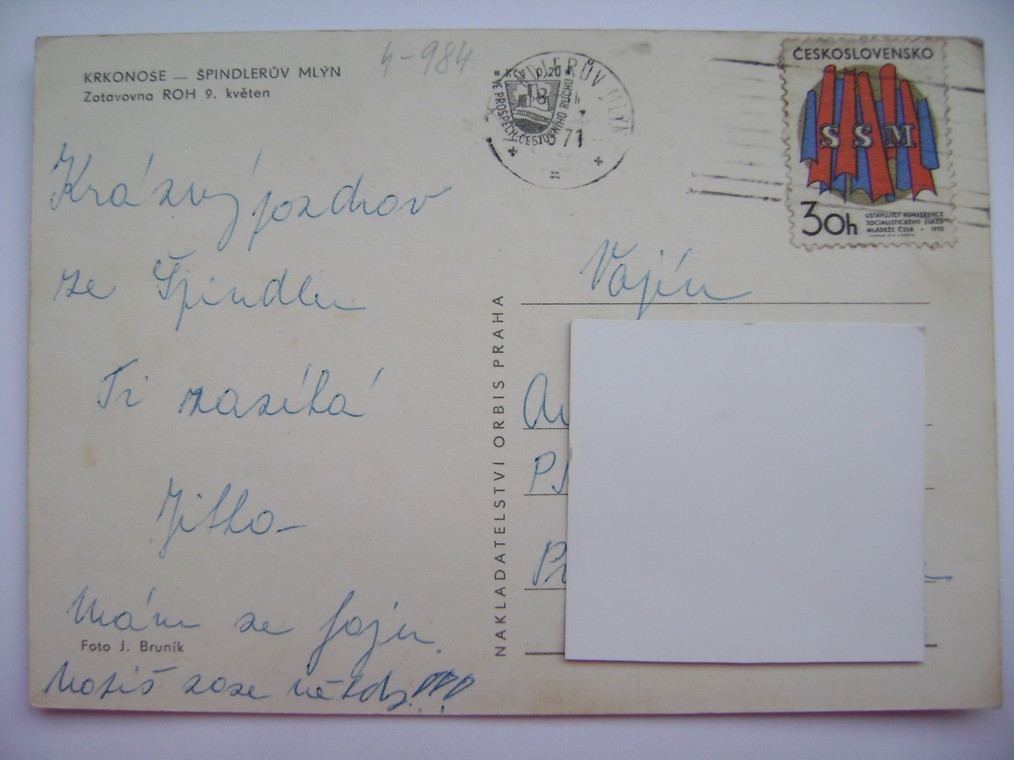 KRKONOSE — ŠPINDLERŮV MLÝN
Zotavovna ROH 9. květen
4-984
Krásný pozdrav
ze Špindlu
Ti zasílá
Jitka
Mám se fajn.
Foto J. Bruník
Musíš zase někdy!!!
NAKLADATELSTVÍ ORBIS PRAHA
ŠPINDLERŮV MLÝN
KČS 0,20
VE PROSPĚCH CESTOVNÍHO RUCHU
71
ČESKOSLOVENSKO
SSM
30h
USTAVUJÍCÍ KONFERENCE
SOCIALISTICKÉHO SVAZU
MLÁDEŽE ČSSR - 1970
Vojín